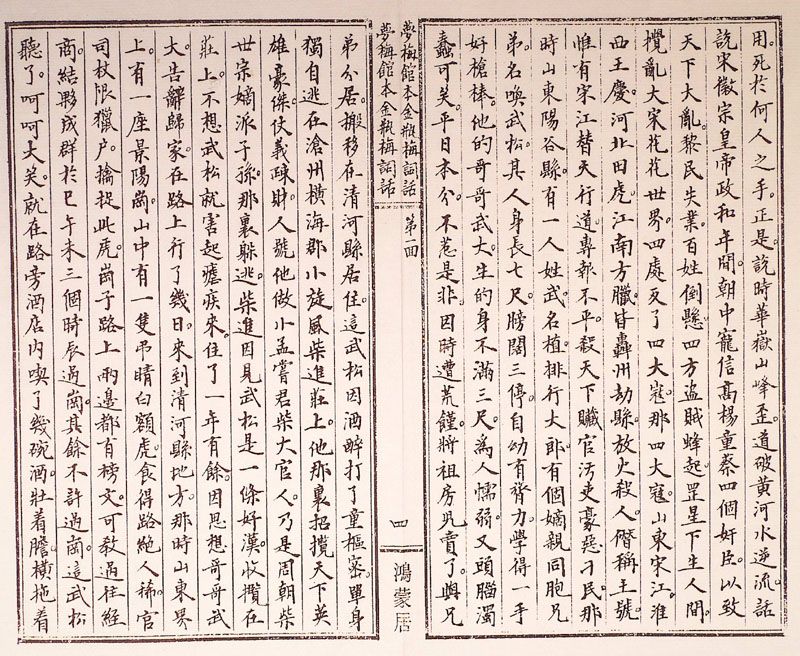 用。死於何人之手。正是。說時華嶽山峰歪。道破黃河水逆流。話
說宋徽宗皇帝政和年間。朝中寵信高楊童蔡四個奸臣。以致
天下大亂。黎民失業。百姓倒懸。四方盜賊蜂起。罡星下生人間。
攪亂大宋花花世界。四處反了四大寇。那四大寇。山東宋江。淮
西王慶。河北田虎。江南方臘。皆轟州劫縣。放火殺人。僭稱王號。
惟有宋江替天行道。專報不平。殺天下贓官汚吏。豪惡刁民。那
時山東陽谷縣。有一人姓武。名植。排行大郎。有個嫡親同胞兄
弟。名喚武松。其人身長七尺。膀闊三停。自幼有膂力。學得一手
好槍棒。他的哥哥武大。生的身不滿三尺。為人懦弱。又頭腦濁
蠢可笑。平日本分。不惹是非。因時遭荒饉。將祖房兒賣了。與兄
夢梅館本金瓶梅詞話
夢梅館本金瓶梅詞話
第一回
四
鴻蒙居
弟分居。搬移在清河縣居住。這武松因酒醉打了童樞密。單身
獨自逃在滄州橫海郡小旋風柴進莊上。他那裏招攬天下英
雄豪傑。仗義疎財。人號他做小孟嘗君柴大官人。乃是周朝柴
世宗嫡派子孫。那裏躲逃。柴進因見武松是一條好漢。收攬在
莊上。不想武松就害起瘧疾來。住了一年有餘。因思想哥哥武
大。告辭歸家。在路上行了幾日。來到清河縣地方。那時山東界
上。有一座景陽崗。山中有一隻弔睛白額虎。食得路絕人稀。官
司杖限獵戶。擒捉此虎。崗子路上兩邊都有榜文。可教過往經
商。結夥成群。於巳午未三個時辰過崗。其餘不許過崗。這武松
聽了。呵呵大笑。就在路旁酒店內喫了幾碗酒。壯着膽。橫拖着